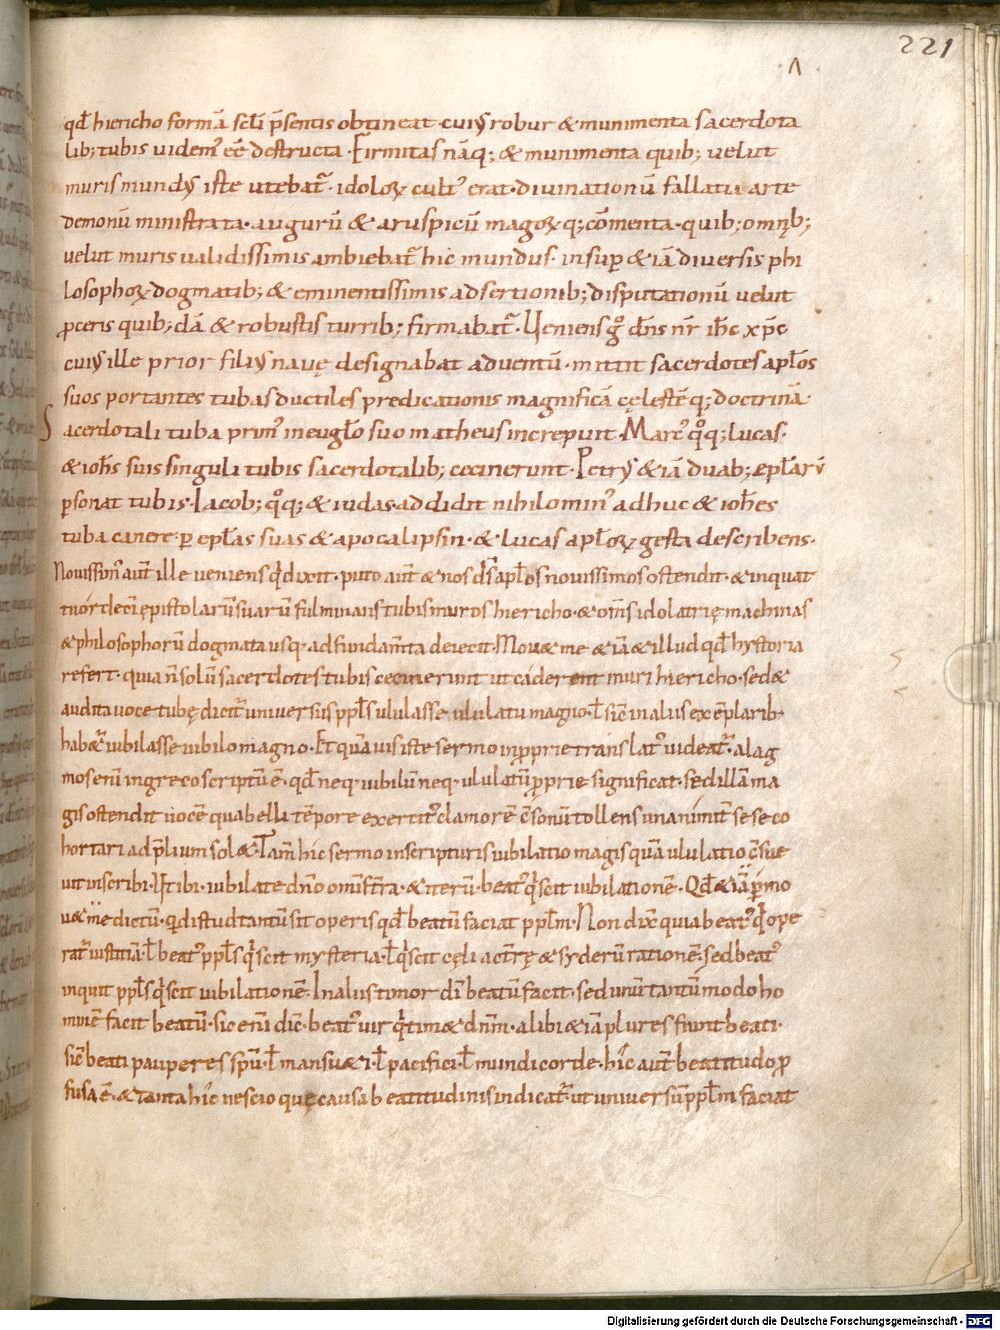 221
.Λ.
qđ hiericho formā sc̄li p̄sentis obtineat· cui᷒ robur & munimenta sacerdota
lib; tubis uidem᷒ eē destructa· Firmitas nāq; & munimenta quib; uelut
muris mund᷒ iste utebat᷑· idoloꝝ cult᷒ erat· diuinationū fallatii arte
demonū ministrata· augurū & aruspicū magoꝝq; cōmenta· quib; omīb;
uelut muris ualidissimis ambiebat᷑ hic mundus· insup̱ & iā diuersis phi
losophoꝝ dogmatib; & eminentissimis adsertionib; disputationū uelut
ꝓceris quib;dā & robustis turrib; firmabat᷑· Ueniens gͦ dn̄s nr̄ ih̄c xp̄c
cui᷒ ille prior fili᷒ nauę designabat aduentū· mittit sacerdotes apłos
suos portantes tubas ductiles predicationis magnificā cęlestēq; doctrinā·
Sacerdotali tuba prim᷒ in euglo suo matheus increpuit· Marc᷒ qͦq; lucas·
& ioħs suis singuli tubis sacerdotalib; cecinerunt· Petr᷒ & iā duab; epłarū
p̱sonat tubis· Iacob; qͦq; & iudas· addidit nihilomin᷒ adhuc & ioħes
tuba canere· p̱ epłas suas & apocalipsin· & lucas apłoꝝ gesta describens·
Nouissim᷒ aut̄ ille ueniens qͥ dixit· puto aut̄ & nos ds̄ apłos nouissimos ostendit· & in quat
tuordeci̅ epistolarū suarū fulminans tubis muros hiericho· & om̄s idolatrię machinas
& philosophorū dogmata usq· ad fundam̄ta deiecit· Mou& me & iā & illud qđ hystoria
refert· quia n̄ solū sacerdotes tubis cecinerunt ut caderent muri hiericho· sed &
audita uoce tubę dicit᷑ uniuersus ppłs ululasse ululatu magno· ł sic̄ in alus exēplarib·
hab&᷑ iubilasse iubilo magno· Et quāuis iste sermo inꝓprie translat᷒ uideat᷑· a lag
mos enī in greco scriptū ē· qđ neq· iubilū neq· ululatū ꝓprie significat· sed illā ma
gis ostendit uocē qua belli tēpore exercit᷒ clamorē c̄sonū tollens unanimit̄ sese co
hortari ad p̄lium sol&· Tam̄ hic sermo in scripturis iubilatio magis quā ululatio c̄sue
uit inscribi· Ut ibi· iubilate dn̄o omīs t̄ra· & iterū· beat᷒ qͥ scit iubilationē· Qđ & iā p̱mo
u& me dictū· qͥ d istud tantū sit operis qđ beatū faciat ppłm· Non dix̄ quia beat᷒ qͥ ope
rat᷑ iustitiā· ł beat᷒ ppłs qͥ scit mysteria· ł qͥ scit cęli ac t̄rę & syderū rationē· sed beat᷒
inquit ppłs qͥ scit iubilationē· In alus timor dī beatū facit· sed unū tantūmodo ho
minē facit beatū· sic enī dic̄· beat᷒ uir qͥ tim& dn̄m· alibi & iā plures fiunt beati·
sic̄ beati pauperes spū· ł mansu&i· ł pacifici· ł mundi corde· hic̄ aut̄ beatitudo ꝓ
fusa ē· & tanta hic̄ nescio quę causa beatitudinis indicat᷑· ut uniuersū ppłm faciat
Digitalisierung gefördert durch die Deutsche Forschungsgemeinschaft - DFG